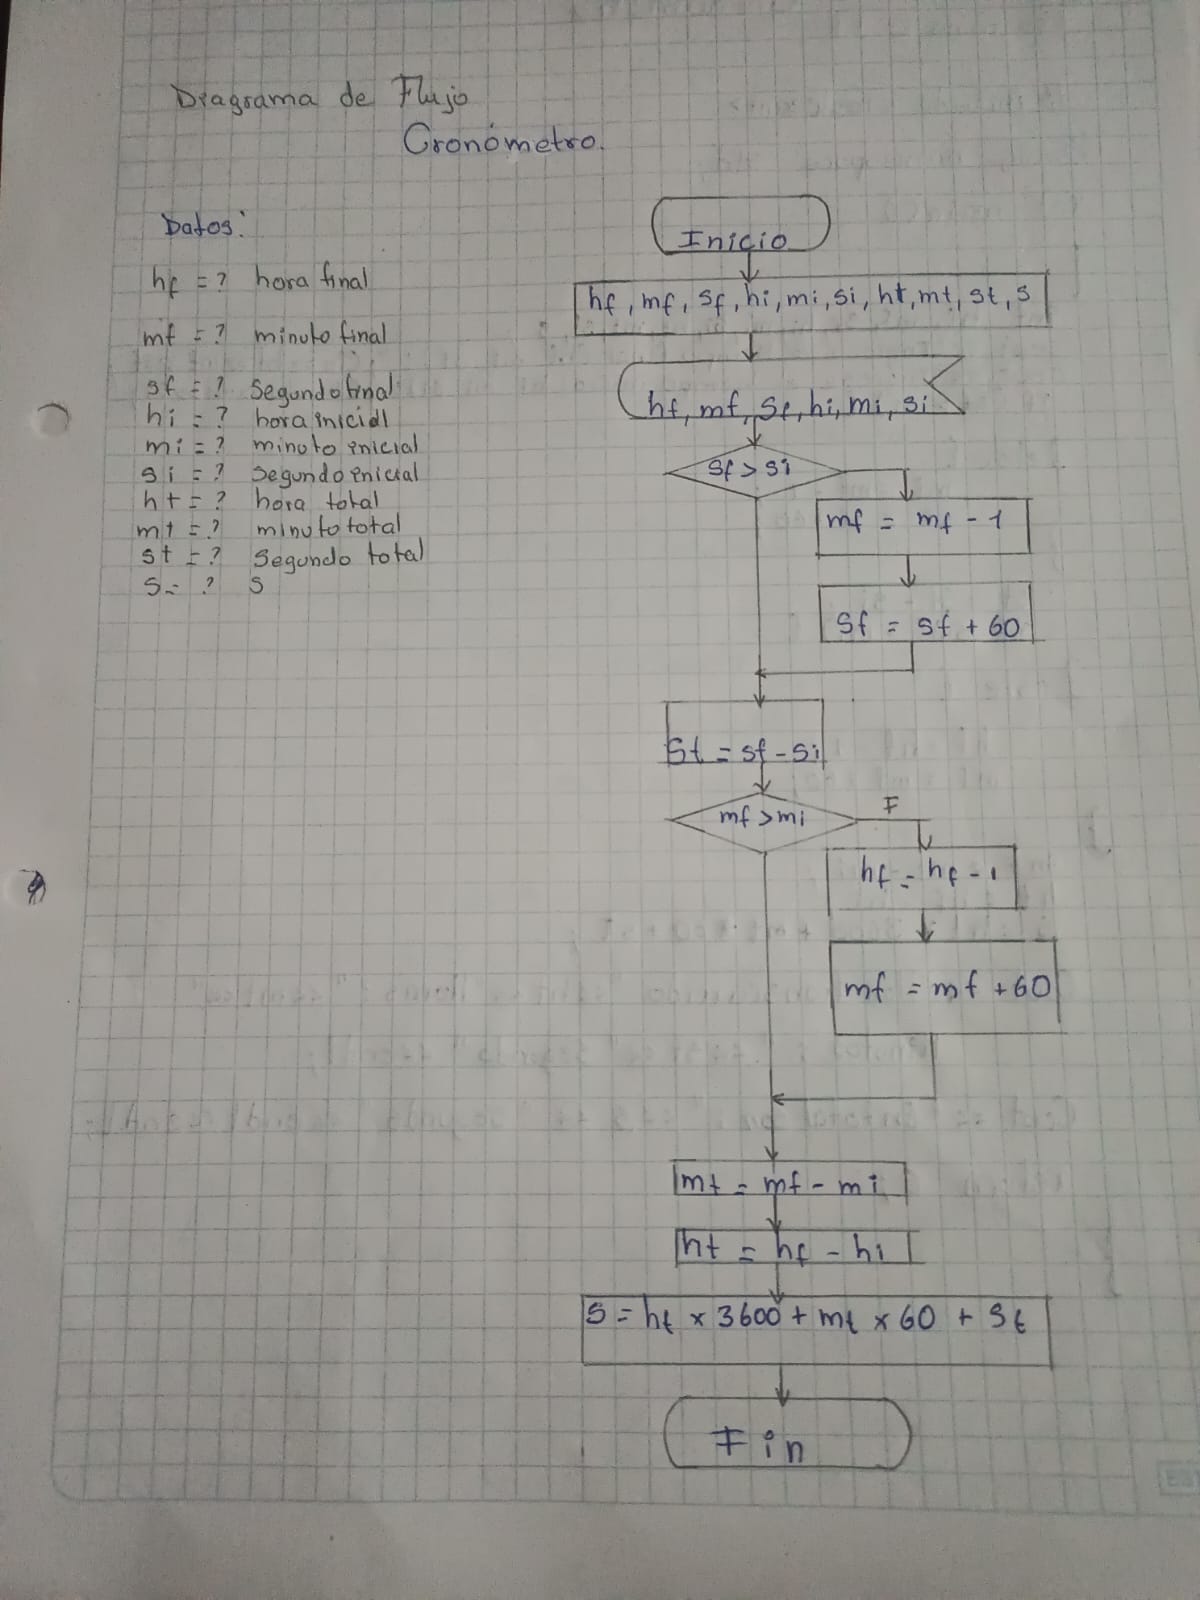 Diagrama de Flujo
Cronómetro.
Datos:
hf = ? hora final
mf = ? minuto final
sf = ? Segundo final
hi = ? hora inicial
mi = ? minuto inicial
si = ? Segundo inicial
ht = ? hora total
mt = ? minuto total
st = ? Segundo total
S = ? S
Inicio
hf, mf, sf, hi, mi, si, ht, mt, st, s
hf, mf, sf, hi, mi, si
sf > si
mf = mf - 1
sf = sf + 60
St = sf - si
mf > mi
F
hf = hf - 1
mf = mf + 60
mt = mf - mi
ht = hf - hi
S = ht x 3600 + mt x 60 + st
Fin